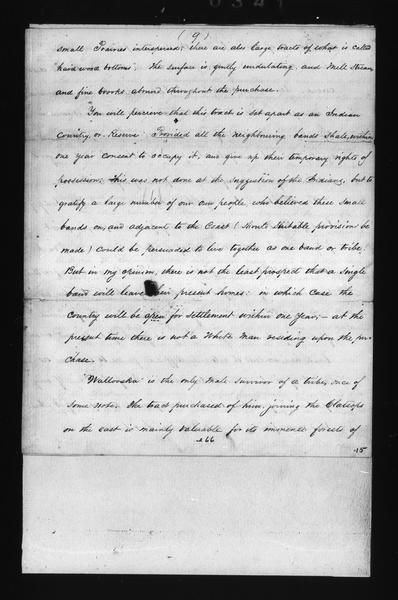 ( 9 )
small Prairies interspersed; there are also large tracts of what is called
hard wood bottoms. The surface is gently undulating and Mill Streams
and fine brooks abound throughout the purchase.
You will perceive that this tract is set apart as an Indian
Country, or Reserve Provided all the neighbouring bands Shall, within
one year consent to occupy it, and give up their temporary rights of
possession; This was not done at the suggestion of the Indians, but to
gratify a large number of our own people who believed these Small
bands on, and adjacent to the Coast (should Suitable provision be
made) Could be persuaded to live together as one band or tribe.
But in my opinion, there is not the least prospect that a Single
band will leave their present homes: in which case the
Country will be open for settlement within one Year; - at the
present time there is not a White Man residing upon the pur-
chase.
"Wallooska" is the only male survivor of a tribe, once of
some note. The tract purchased of him, joining the Clatsops
on the east is mainly valuable for its immense forests of
266
15